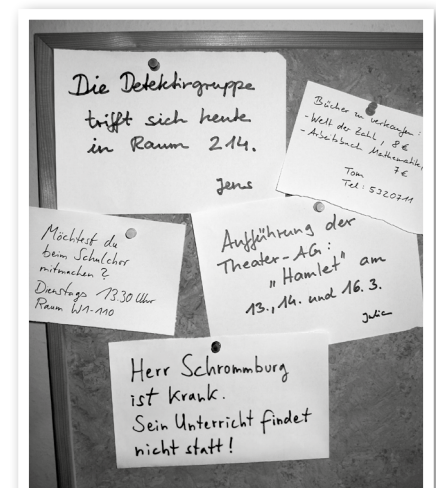 Die Detektivgruppe
trifft sich heute
in Raum 214.
Jens
Bücher zu verkaufen:
- Welt der Zahl, 8 €
- Arbeitsbuch Mathematik,
7 €
Tom
Tel: 5320711
Möchtest du
beim Schulchor
mitmachen?
Dienstags 13.30 Uhr
Raum W1-110
Aufführung der
Theater-AG:
"Hamlet" am
13., 14. und 16. 3.
Julia
Herr Schrommburg
ist krank.
Sein Unterricht findet
nicht statt!